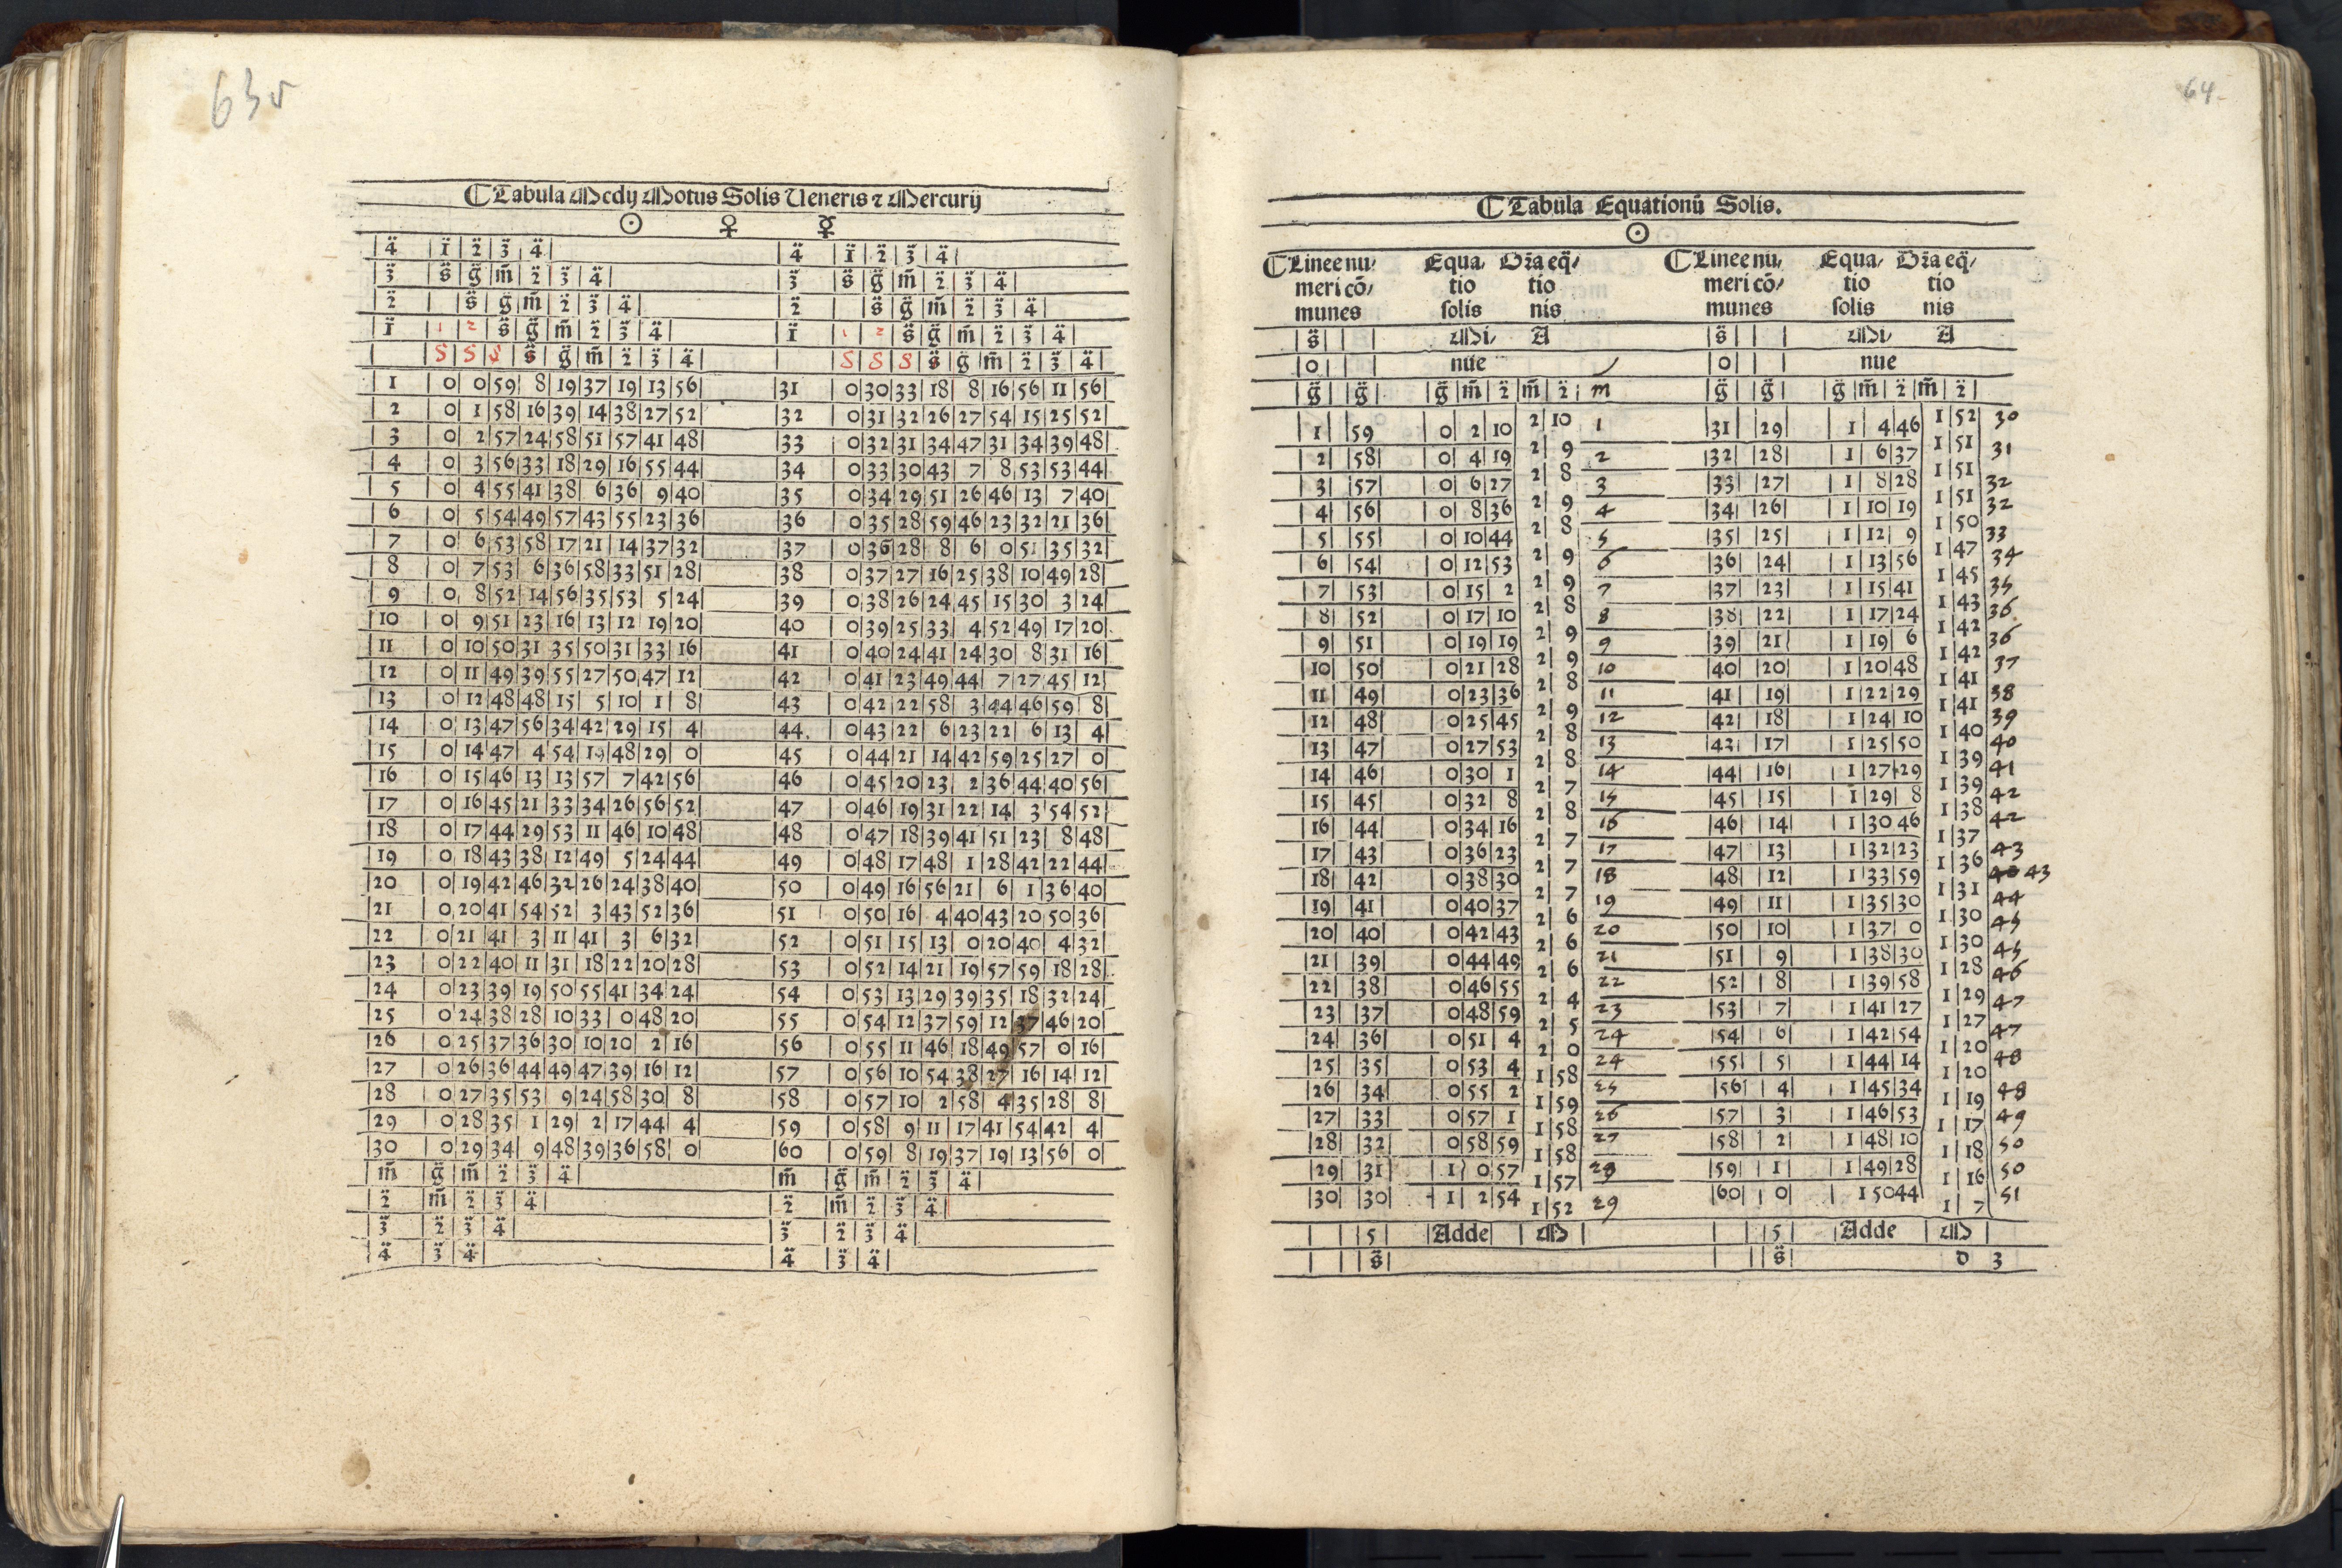 63v
Tabula Medij Motus Solis Veneris ⁊ Mercurij
☉ ♀ ☿
4̈ | ï | 2̈ | 3̈ | 4̈ | 4̈ | ï | 2̈ | 3̈ | 4̈
3̈ | s̈ | g̈ | m̈ | 2̈ | 3̈ | 4̈ | 3̈ | s̈ | g̈ | m̈ | 2̈ | 3̈ | 4̈
2̈ | s̈ | g̈ | m̈ | 2̈ | 3̈ | 4̈ | 2̈ | s̈ | g̈ | m̈ | 2̈ | 3̈ | 4̈
ï | 1 | 2 | s̈ | g̈ | m̈ | 2̈ | 3̈ | 4̈ | ï | 1 | 2 | s̈ | g̈ | m̈ | 2̈ | 3̈ | 4̈
S | S | S | s̈ | g̈ | m̈ | 2̈ | 3̈ | 4̈ | S | S | S | s̈ | g̈ | m̈ | 2̈ | 3̈ | 4̈
1 | 0 | 0 | 59 | 8 | 19 | 37 | 19 | 13 | 56 | 31 | 0 | 30 | 33 | 18 | 8 | 16 | 56 | 11 | 56
2 | 0 | 1 | 58 | 16 | 39 | 14 | 38 | 27 | 52 | 32 | 0 | 31 | 32 | 26 | 27 | 54 | 15 | 25 | 52
3 | 0 | 2 | 57 | 24 | 58 | 51 | 57 | 41 | 48 | 33 | 0 | 32 | 31 | 34 | 47 | 31 | 34 | 39 | 48
4 | 0 | 3 | 56 | 33 | 18 | 29 | 16 | 55 | 44 | 34 | 0 | 33 | 30 | 43 | 7 | 8 | 53 | 53 | 44
5 | 0 | 4 | 55 | 41 | 38 | 6 | 36 | 9 | 40 | 35 | 0 | 34 | 29 | 51 | 26 | 46 | 13 | 7 | 40
6 | 0 | 5 | 54 | 49 | 57 | 43 | 55 | 23 | 36 | 36 | 0 | 35 | 28 | 59 | 46 | 23 | 32 | 21 | 36
7 | 0 | 6 | 53 | 58 | 17 | 21 | 14 | 37 | 32 | 37 | 0 | 36 | 28 | 8 | 6 | 0 | 51 | 35 | 32
8 | 0 | 7 | 53 | 6 | 36 | 58 | 33 | 51 | 28 | 38 | 0 | 37 | 27 | 16 | 25 | 38 | 10 | 49 | 28
9 | 0 | 8 | 52 | 14 | 56 | 35 | 53 | 5 | 24 | 39 | 0 | 38 | 26 | 24 | 45 | 15 | 30 | 3 | 24
10 | 0 | 9 | 51 | 23 | 16 | 13 | 12 | 19 | 20 | 40 | 0 | 39 | 25 | 33 | 4 | 52 | 49 | 17 | 20
11 | 0 | 10 | 50 | 31 | 35 | 50 | 31 | 33 | 16 | 41 | 0 | 40 | 24 | 41 | 24 | 30 | 8 | 31 | 16
12 | 0 | 11 | 49 | 39 | 55 | 27 | 50 | 47 | 12 | 42 | 0 | 41 | 23 | 49 | 44 | 7 | 27 | 45 | 12
13 | 0 | 12 | 48 | 48 | 15 | 5 | 10 | 1 | 8 | 43 | 0 | 42 | 22 | 58 | 3 | 44 | 46 | 59 | 8
14 | 0 | 13 | 47 | 56 | 34 | 42 | 29 | 15 | 4 | 44 | 0 | 43 | 22 | 6 | 23 | 22 | 6 | 13 | 4
15 | 0 | 14 | 47 | 4 | 54 | 19 | 48 | 29 | 0 | 45 | 0 | 44 | 21 | 14 | 42 | 59 | 25 | 27 | 0
16 | 0 | 15 | 46 | 13 | 13 | 57 | 7 | 42 | 56 | 46 | 0 | 45 | 20 | 23 | 2 | 36 | 44 | 40 | 56
17 | 0 | 16 | 45 | 21 | 33 | 34 | 26 | 56 | 52 | 47 | 0 | 46 | 19 | 31 | 22 | 14 | 3 | 54 | 52
18 | 0 | 17 | 44 | 29 | 53 | 11 | 46 | 10 | 48 | 48 | 0 | 47 | 18 | 39 | 41 | 51 | 23 | 8 | 48
19 | 0 | 18 | 43 | 38 | 12 | 49 | 5 | 24 | 44 | 49 | 0 | 48 | 17 | 48 | 1 | 28 | 42 | 22 | 44
20 | 0 | 19 | 42 | 46 | 32 | 26 | 24 | 38 | 40 | 50 | 0 | 49 | 16 | 56 | 21 | 6 | 1 | 36 | 40
21 | 0 | 20 | 41 | 54 | 52 | 3 | 43 | 52 | 36 | 51 | 0 | 50 | 16 | 4 | 40 | 43 | 20 | 50 | 36
22 | 0 | 21 | 41 | 3 | 11 | 41 | 3 | 6 | 32 | 52 | 0 | 51 | 15 | 13 | 0 | 20 | 40 | 4 | 32
23 | 0 | 22 | 40 | 11 | 31 | 18 | 22 | 20 | 28 | 53 | 0 | 52 | 14 | 21 | 19 | 57 | 59 | 18 | 28
24 | 0 | 23 | 39 | 19 | 50 | 55 | 41 | 34 | 24 | 54 | 0 | 53 | 13 | 29 | 39 | 35 | 18 | 32 | 24
25 | 0 | 24 | 38 | 28 | 10 | 33 | 0 | 48 | 20 | 55 | 0 | 54 | 12 | 37 | 59 | 12 | 37 | 46 | 20
26 | 0 | 25 | 37 | 36 | 30 | 10 | 20 | 2 | 16 | 56 | 0 | 55 | 11 | 46 | 18 | 49 | 57 | 0 | 16
27 | 0 | 26 | 36 | 44 | 49 | 47 | 39 | 16 | 12 | 57 | 0 | 56 | 10 | 54 | 38 | 27 | 16 | 14 | 12
28 | 0 | 27 | 35 | 53 | 9 | 24 | 58 | 30 | 8 | 58 | 0 | 57 | 10 | 2 | 58 | 4 | 35 | 28 | 8
29 | 0 | 28 | 35 | 1 | 29 | 2 | 17 | 44 | 4 | 59 | 0 | 58 | 9 | 11 | 17 | 41 | 54 | 42 | 4
30 | 0 | 29 | 34 | 9 | 48 | 39 | 36 | 58 | 0 | 60 | 0 | 59 | 8 | 19 | 37 | 19 | 13 | 56 | 0
m̈ | g̈ | m̈ | 2̈ | 3̈ | 4̈ | m̈ | g̈ | m̈ | 2̈ | 3̈ | 4̈
2̈ | m̈ | 2̈ | 3̈ | 4̈ | 2̈ | m̈ | 2̈ | 3̈ | 4̈
3̈ | 2̈ | 3̈ | 4̈ | 3̈ | 2̈ | 3̈ | 4̈
4̈ | 3̈ | 4̈ | 4̈ | 3̈ | 4̈
64
Tabula Equationū Solis.
☉
Linee nu/ Equa/ Dr̄a eq̄/ Linee nu/ Equa/ Dr̄a eq̄/
meri cō/ tio tio meri cō/ tio tio
munes solis nis munes solis nis
s̈ | Mi/ | A | s̈ | Mi/ | A
0 | nue | 0 | nue
g̈ | g̈ | g̈ | m̈ | 2̈ | m̈ | 2̈ | m | g̈ | g̈ | g̈ | m̈ | 2̈ | m̈ | 2̈
1 | 59 | 0 | 2 | 10 | 2 | 10 | 1 | 31 | 29 | 1 | 4 | 46 | 1 | 52 | 30
2 | 58 | 0 | 4 | 19 | 2 | 9 | 2 | 32 | 28 | 1 | 6 | 37 | 1 | 51 | 31
3 | 57 | 0 | 6 | 27 | 2 | 8 | 3 | 33 | 27 | 1 | 8 | 28 | 1 | 51 | 32
4 | 56 | 0 | 8 | 36 | 2 | 9 | 4 | 34 | 26 | 1 | 10 | 19 | 1 | 51 | 32
5 | 55 | 0 | 10 | 44 | 2 | 8 | 5 | 35 | 25 | 1 | 12 | 9 | 1 | 50 | 33
6 | 54 | 0 | 12 | 53 | 2 | 9 | 6 | 36 | 24 | 1 | 13 | 56 | 1 | 47 | 34
7 | 53 | 0 | 15 | 2 | 2 | 9 | 7 | 37 | 23 | 1 | 15 | 41 | 1 | 45 | 35
8 | 52 | 0 | 17 | 10 | 2 | 8 | 8 | 38 | 22 | 1 | 17 | 24 | 1 | 43 | 36
9 | 51 | 0 | 19 | 19 | 2 | 9 | 9 | 39 | 21 | 1 | 19 | 6 | 1 | 42 | 36
10 | 50 | 0 | 21 | 28 | 2 | 9 | 10 | 40 | 20 | 1 | 20 | 48 | 1 | 42 | 37
11 | 49 | 0 | 23 | 36 | 2 | 8 | 11 | 41 | 19 | 1 | 22 | 29 | 1 | 41 | 38
12 | 48 | 0 | 25 | 45 | 2 | 9 | 12 | 42 | 18 | 1 | 24 | 10 | 1 | 41 | 39
13 | 47 | 0 | 27 | 53 | 2 | 8 | 13 | 43 | 17 | 1 | 25 | 50 | 1 | 40 | 40
14 | 46 | 0 | 30 | 1 | 2 | 8 | 14 | 44 | 16 | 1 | 27 | 29 | 1 | 39 | 41
15 | 45 | 0 | 32 | 8 | 2 | 7 | 15 | 45 | 15 | 1 | 29 | 8 | 1 | 39 | 42
16 | 44 | 0 | 34 | 16 | 2 | 8 | 16 | 46 | 14 | 1 | 30 | 46 | 1 | 38 | 42
17 | 43 | 0 | 36 | 23 | 2 | 7 | 17 | 47 | 13 | 1 | 32 | 23 | 1 | 37 | 43
18 | 42 | 0 | 38 | 30 | 2 | 7 | 18 | 48 | 12 | 1 | 33 | 59 | 1 | 36 | 43
19 | 41 | 0 | 40 | 37 | 2 | 7 | 19 | 49 | 11 | 1 | 35 | 30 | 1 | 31 | 44
20 | 40 | 0 | 42 | 43 | 2 | 6 | 20 | 50 | 10 | 1 | 37 | 0 | 1 | 30 | 45
21 | 39 | 0 | 44 | 49 | 2 | 6 | 21 | 51 | 9 | 1 | 38 | 30 | 1 | 30 | 45
22 | 38 | 0 | 46 | 55 | 2 | 6 | 22 | 52 | 8 | 1 | 39 | 58 | 1 | 28 | 46
23 | 37 | 0 | 48 | 59 | 2 | 4 | 23 | 53 | 7 | 1 | 41 | 27 | 1 | 29 | 47
24 | 36 | 0 | 51 | 4 | 2 | 5 | 24 | 54 | 6 | 1 | 42 | 54 | 1 | 27 | 47
25 | 35 | 0 | 53 | 4 | 2 | 0 | 24 | 55 | 5 | 1 | 44 | 14 | 1 | 20 | 48
26 | 34 | 0 | 55 | 2 | 1 | 58 | 25 | 56 | 4 | 1 | 45 | 34 | 1 | 20 | 48
27 | 33 | 0 | 57 | 1 | 1 | 59 | 26 | 57 | 3 | 1 | 46 | 53 | 1 | 19 | 49
28 | 32 | 0 | 58 | 59 | 1 | 58 | 27 | 58 | 2 | 1 | 48 | 10 | 1 | 17 | 50
29 | 31 | 1 | 0 | 57 | 1 | 58 | 28 | 59 | 1 | 1 | 49 | 28 | 1 | 18 | 50
30 | 30 | 1 | 2 | 54 | 1 | 57 | 29 | 60 | 0 | 1 | 50 | 44 | 1 | 16 | 51
1 | 52 | 1 | 7
5 | Adde | M | 5 | Adde | M
s̈ | s̈ | D 3